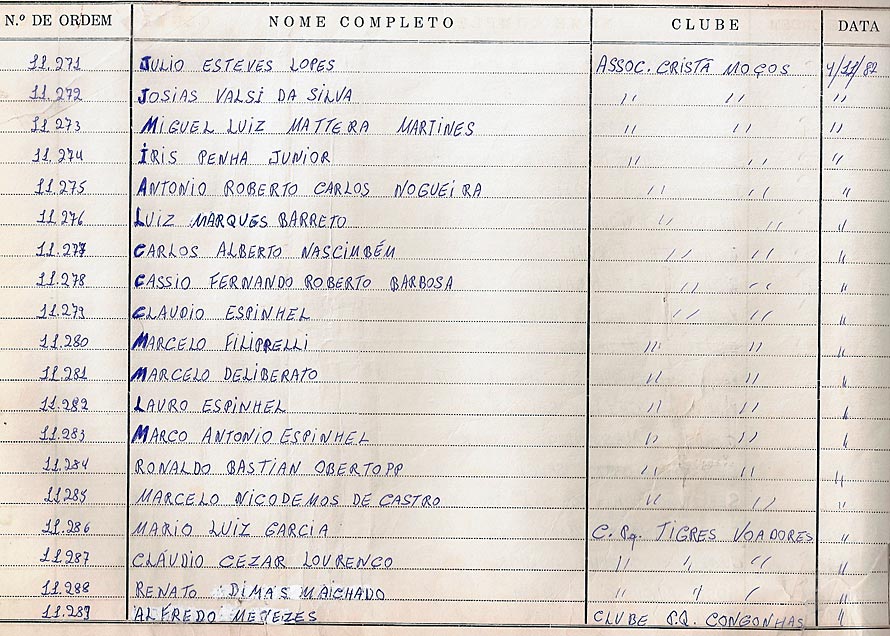 N.º DE ORDEM NOME COMPLETO CLUBE DATA
11.271 JULIO ESTEVES LOPES ASSOC. CRISTÃ MOÇOS 4/11/82
11.272 JOSIAS VALSI DA SILVA " " "
11.273 MIGUEL LUIZ MATTERA MARTINES " " "
11.274 IRIS PENHA JUNIOR " " "
11.275 ANTONIO ROBERTO CARLOS NOGUEIRA " " "
11.276 LUIZ MARQUES BARRETO " " "
11.277 CARLOS ALBERTO NASCIMBÉM " " "
11.278 CASSIO FERNANDO ROBERTO BARBOSA " " "
11.279 CLAUDIO ESPINHEL " " "
11.280 MARCELO FILIPPRELLI " " "
11.281 MARCELO DELIBERATO " " "
11.282 LAURO ESPINHEL " " "
11.283 MARCO ANTONIO ESPINHEL " " "
11.284 RONALDO BASTIAN OBERTOPP " " "
11.285 MARCELO NICODEMOS DE CASTRO " " "
11.286 MARIO LUIZ GARCIA C. Pq. TIGRES VOADORES "
11.287 CLÁUDIO CEZAR LOURENÇO " " " "
11.288 RENATO DIMAS MACHADO " " " "
11.289 ALFREDO MENEZES CLUBE P.Q. CONGONHAS "